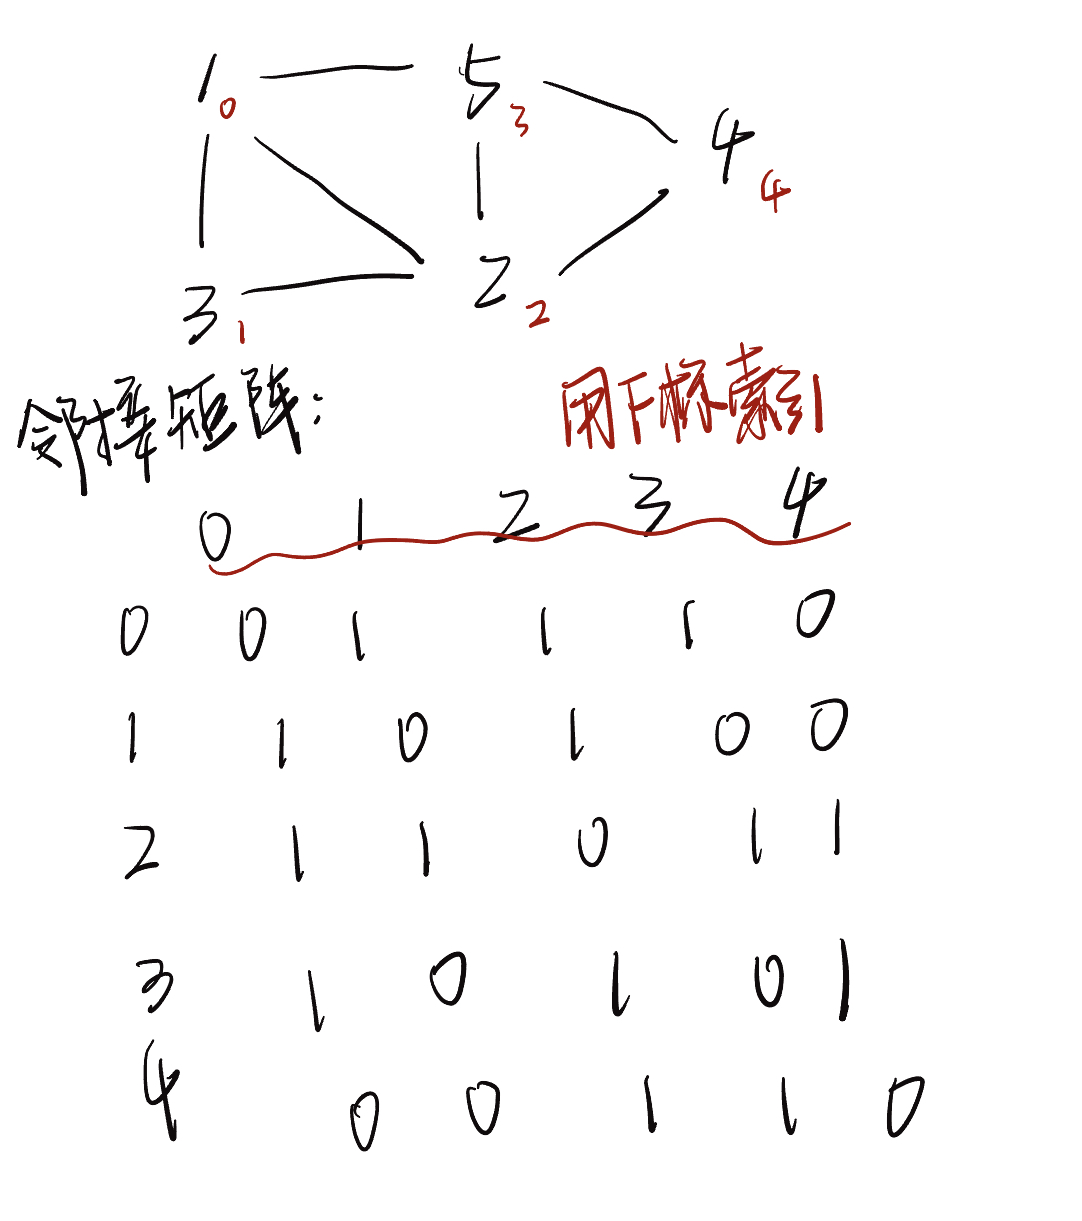 1 0 5 3
4 4
3 1 2 2
邻接矩阵: 用下标索引
0 1 2 3 4
0 0 1 1 1 0
1 1 0 1 0 0
2 1 1 0 1 1
3 1 0 1 0 1
4 0 0 1 1 0